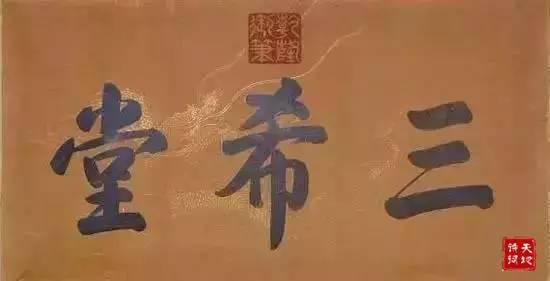 乾隆御筆
三希堂
天地